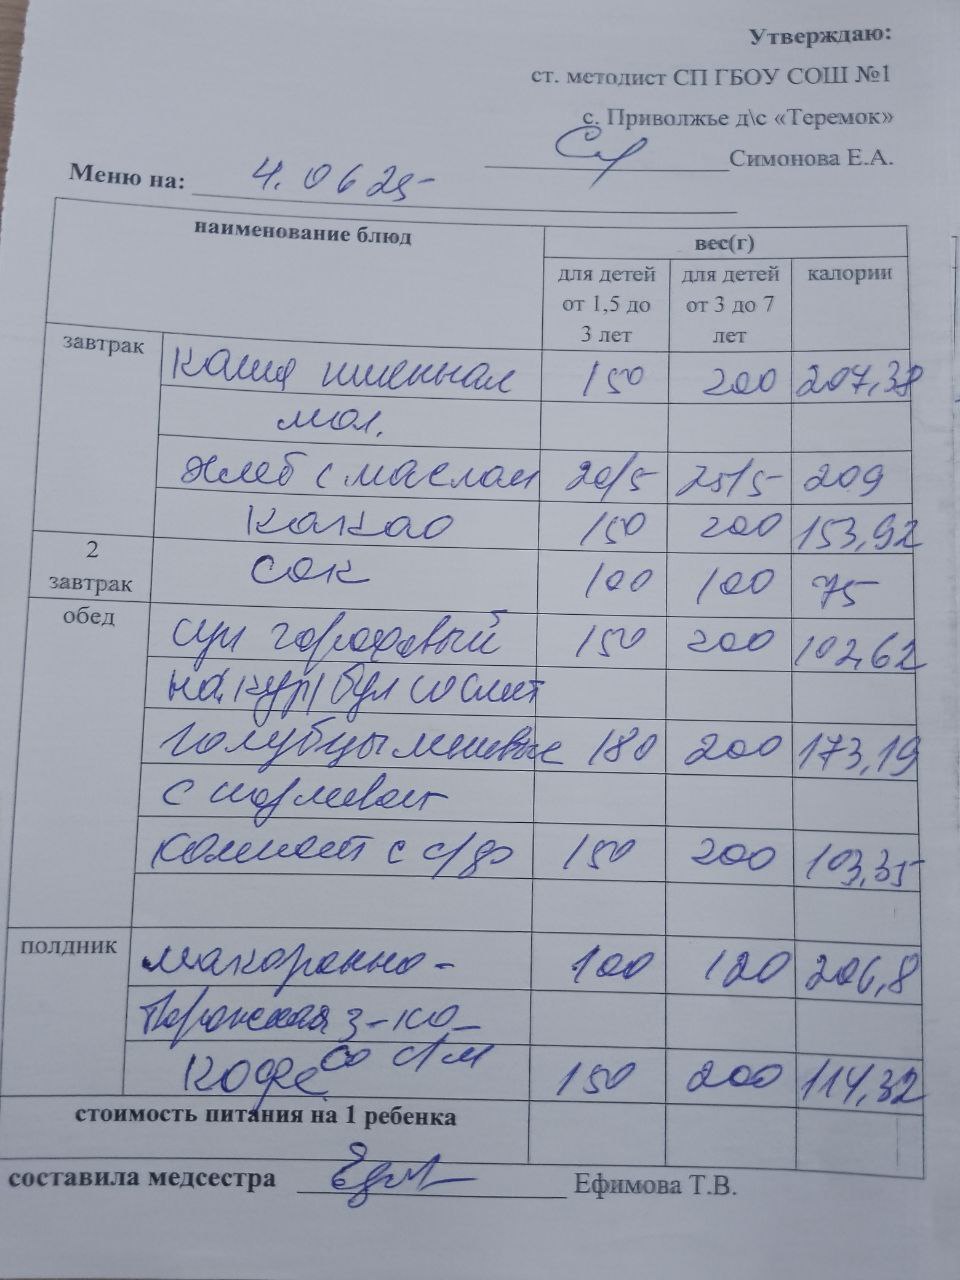 Утверждаю:
ст. методист СП ГБОУ СОШ №1
с. Приволжье д\с «Теремок»
Симонова Е.А.
Меню на: 4.06 25
наименование блюд вес(г)
для детей от 1,5 до 3 лет для детей от 3 до 7 лет калории
завтрак Каша пшенная 150 200 207,38
мол.
Хлеб с маслом 20/5 25/5 209
Какао 150 200 153,92
2 завтрак Сок 100 100 75
обед Суп гороховый 150 200 102,62
на кур бул со смет
Голубцы ленивые 180 200 173,19
Компот с с/ф 150 200 103,35
полдник Макаронно- 100 120 206,8
творожная з-ка
Кофе со с/м 150 200 114,32
стоимость питания на 1 ребенка
составила медсестра Ефимова Т.В.